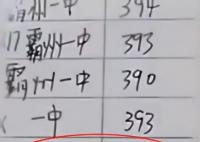 州一中 394
17 霸州一中 393
霸州一中 390
一中 393